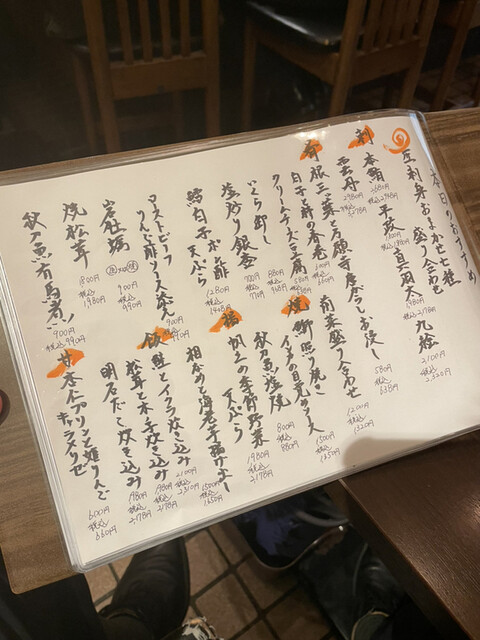 本日のおすすめ
生刺身おまかせ七種
盛り合わせ
2,100円
税込
2,320円
刺
本鮪
平政
真鯛
九絵
雲丹
前
根三つ葉と万願寺唐がらしお浸し
580円
税込
638円
白子と餅の春巻
前菜盛り合わせ
1200円
税込
1320円
クリームチーズ豆腐
880円
税込
968円
いくら卸し
塩炒り銀杏
700円
税込
770円
鱈白子ポン酢
天ぷら
1280円
税込
1408円
ローストビーフ
りんご酢ソース添え
900円
税込
990円
岩牡蠣
900円
税込
990円
焼松茸
1,800円
税込
1,980円
秋刀魚有馬煮
900円
税込
990円
焼
鰤照り焼き
1500円
税込
1650円
秋刀魚塩焼
800円
税込
880円
揚
帆立の季節野菜
天ぷら
1980円
税込
2178円
1500円
税込
1650円
飯
鮭とイクラ炊き込み
2100円
税込
2310円
松茸と木の子炊き込み
1980円
税込
2,178円
明石だこ炊き込み
1980円
税込
2,178円
甘
杏仁プリンと姫りんご
キャラメリゼ
600円
税込
660円